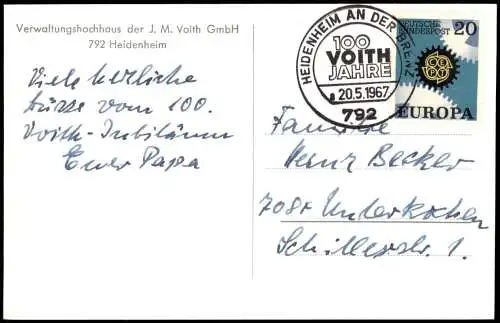 Verwaltungshochhaus der J. M. Voith GmbH
792 Heidenheim
Viele herzliche
Grüsse vom 100.
Voith-Jubiläum
Euer Papa
HEIDENHEIM AN DER BRENZ
100
VOITH
JAHRE
a 20.5.1967
792
DEUTSCHE
BUNDESPOST 20
CEPT
EUROPA
Familie
Heinz Becker
7080 Unterkochen
Schillerstr. 1.